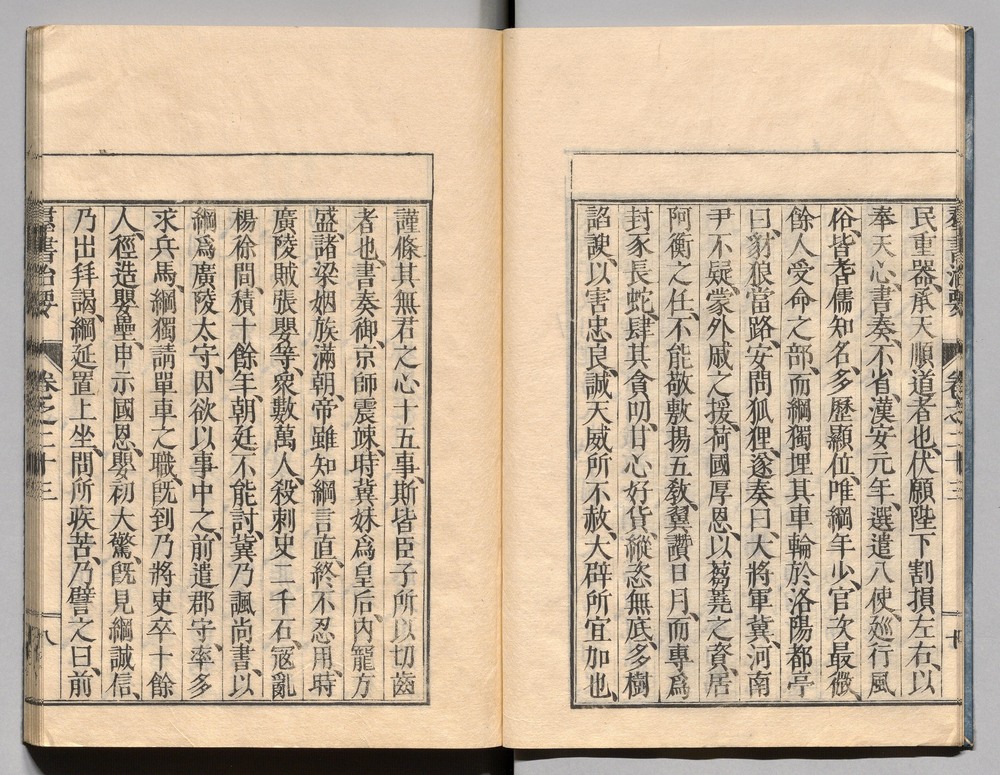 羣書治要 卷之二十三
民重器、承天順道者也、伏願陛下割損左右、以
奉天心、書奏、不省、漢安元年、選遣八使、廵行風
俗、皆耆儒知名、多歷顯位、唯綱年少、官次最微、
餘人受命之部、而綱獨埋其車輪於洛陽都亭
曰、豺狼當路、安問狐狸、遂奏曰、大將軍冀、河南
尹不疑、蒙外戚之援、荷國厚恩、以芻蕘之資、居
阿衡之任、不能敬敷揚五敎、翼讚日月、而專爲
封豕長蛇、肆其貪叨、甘心好貨、縱恣無底、多樹
諂諛、以害忠良、誠天威所不赦、大辟所宜加也、
謹條其無君之心十五事、斯皆臣子所以切齒
者也、書奏御、京師震竦、時冀妹爲皇后、內寵方
盛、諸梁姻族滿朝、帝雖知綱言直、終不忍用、時
廣陵賊張嬰等、衆數萬人、殺刺史二千石、寇亂
楊徐間、積十餘年、朝廷不能討、冀乃諷尚書、以
綱爲廣陵太守、因欲以事中之、前遣郡守、率多
求兵馬、綱獨請單車之職、旣到乃將吏卒十餘
人、徑造嬰壘、申示國恩、嬰初大驚、旣見綱誠信、
乃出拜謁、綱延置上坐、問所疾苦、乃譬之曰、前
羣書治要 卷之二十三 八